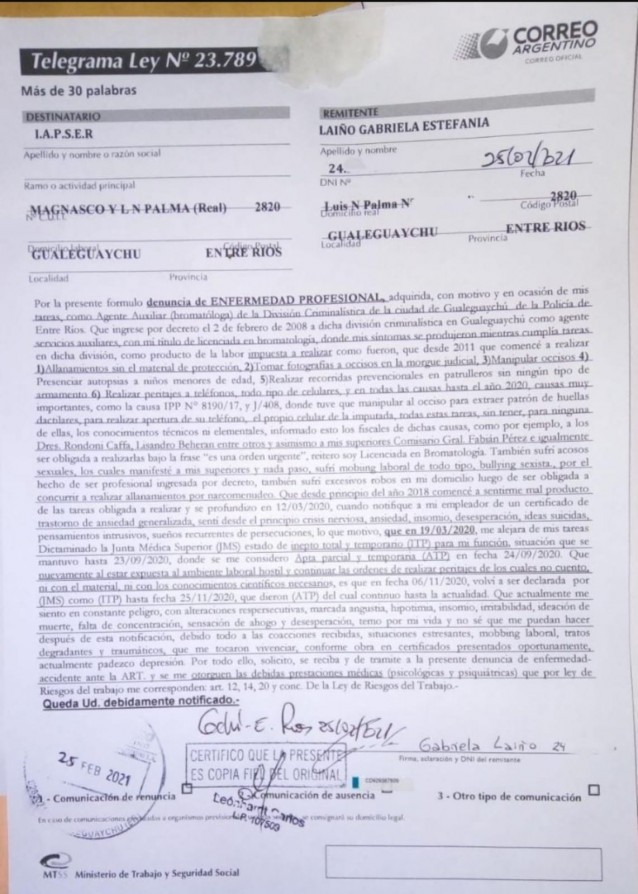 CORREO
ARGENTINO
CORREO OFICIAL
Telegrama Ley Nº 23.789
Más de 30 palabras
DESTINATARIO
I.A.P.S.E.R
Apellido y nombre o razón social
Ramo o actividad principal
MAGNASCO Y L N PALMA (Real) 2820
Domicilio laboral Código Postal
GUALEGUAYCHU ENTRE RIOS
Localidad Provincia
REMITENTE
LAIÑO GABRIELA ESTEFANIA
Apellido y nombre
25/02/2021
24. Fecha
DNI Nº
Luis N Palma Nº 2820
Domicilio real Código Postal
GUALEGUAYCHU ENTRE RIOS
Localidad Provincia
Por la presente formulo denuncia de ENFERMEDAD PROFESIONAL, adquirida, con motivo y en ocasión de mis
tareas, como Agente Auxiliar (bromatóloga) de la División Criminalística de la ciudad de Gualeguaychú, de la Policía de
Entre Ríos. Que ingrese por decreto el 2 de febrero de 2008 a dicha división criminalística en Gualeguaychú como agente
servicios auxiliares, con mi título de licenciada en bromatología, donde mis síntomas se produjeron mientras cumplía tareas
en dicha división, como producto de la labor impuesta a realizar como fueron, que desde 2011 comencé a realizar
1)Allanamientos sin el material de protección, 2)Tomar fotografías a occisos en la morgue judicial, 3)Manipular occisos 4)
Presenciar autopsias a niños menores de edad, 5)Realizar recorridas prevencionales en patrulleros sin ningún tipo de
armamento 6) Realizar pentajes a teléfonos, todo tipo de celulares, y en todas las causas hasta el año 2020, causas muy
importantes, como la causa IPP Nº 8190/17, y J/408, donde tuve que manipular al occiso para extraer patrón de huellas
dactilares, para realizar apertura de su teléfono, el propio celular de la imputada, todas estas tareas, sin tener, para ninguna
de ellas, los conocimientos técnicos ni elementales, informado esto los fiscales de dichas causas, como por ejemplo, a los
Dres. Rondoni Caffa, Lisandro Beheran entre otros y asimismo a mis superiores Comisario Gral. Fabián Pérez e igualmente
ser obligada a realizarlas bajo la frase "es una orden urgente", reitero soy Licenciada en Bromatología. También sufrí acosos
sexuales, los cuales manifesté a mis superiores y nada paso, sufrí mobing laboral de todo tipo, bullying sexista, por el
hecho de ser profesional ingresada por decreto, también sufrí excesivos robos en mi domicilio luego de ser obligada a
concurrir a realizar allanamientos por narcomenudeo. Que desde principio del año 2018 comencé a sentirme mal producto
de las tareas obligada a realizar y se profundizo en 12/03/2020, cuando notifique a mi empleador de un certificado de
trastorno de ansiedad generalizada, sentí desde el principio crisis nerviosa, ansiedad, insomio, desesperación, ideas suicidas,
pensamientos intrusivos, sueños recurrentes de persecuciones, lo que motivo, que en 19/03/2020, me alejara de mis tareas
Dictaminado la Junta Médica Superior (JMS) estado de inepto total y temporario (ITP) para mi función, situación que se
mantuvo hasta 23/09/2020, donde se me considero Apta parcial y temporaria (ATP) en fecha 24/09/2020. Que
nuevamente al estar expuesta al ambiente laboral hostil y continuar las ordenes de realizar pentajes de los cuales no cuento,
ni con el material, ni con los conocimientos científicos necesarios, es que en fecha 06/11/2020, volví a ser declarada por
(JMS) como (ITP) hasta fecha 25/11/2020, que dieron (ATP) del cual continuo hasta la actualidad. Que actualmente me
siento en constante peligro, con alteraciones respersecutivas, marcada angustia, hipotimia, insomio, irritabilidad, ideación de
muerte, falta de concentración, sensación de ahogo y desesperación, temo por mi vida y no sé que me puedan hacer
después de esta notificación, debido todo a las coacciones recibidas, situaciones estresantes, mobbing laboral, tratos
degradantes y traumáticos, que me tocaron vivenciar, conforme obra en certificados presentados oportunamente,
actualmente padezco depresión. Por todo ello, solicito, se reciba y de tramite a la presente denuncia de enfermedad-
accidente ante la ART. y se me otorguen las debidas prestaciones médicas (psicológicas y psiquiátricas) que por ley de
Riesgos del trabajo me corresponden: art. 12, 14, 20 y conc. De la Ley de Riesgos del Trabajo.-
Queda Ud. debidamente notificado.-
Gchú - E. Rios 25/02/2021
Gabriela Laiño 24
Firma, aclaración y DNI del remitente
25 FEB 2021
CERTIFICO QUE LA PRESENTE
ES COPIA FIEL DEL ORIGINAL
1 - Comunicación de renuncia
Comunicación de ausencia
3 - Otro tipo de comunicación
Leonhardt Carlos
L.P. 107509
se consignará su domicilio legal.
MTSS Ministerio de Trabajo y Seguridad Social